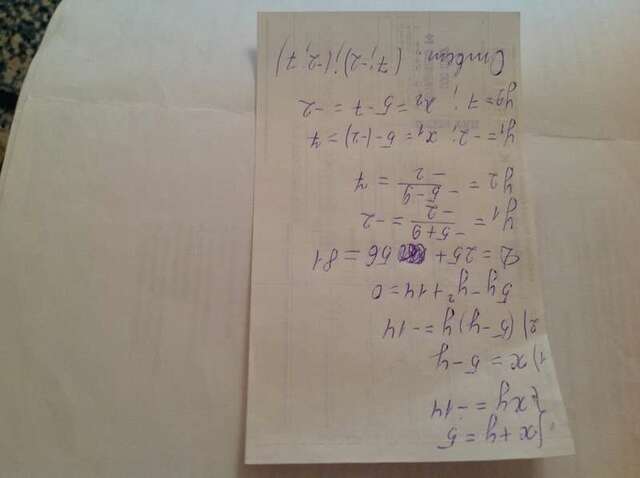 {x + y = 5
{xy = -14
1) x = 5 - y
2) (5 - y) y = -14
5y - y² + 14 = 0
D = 25 + 56 = 81
y1 = (-5+9)/(-2) = -2
y2 = (-5-9)/(-2) = 7
y1 = -2; x1 = 5 - (-2) = 7
y2 = 7; x2 = 5 - 7 = -2
Ответ: (7; -2); (-2; 7)